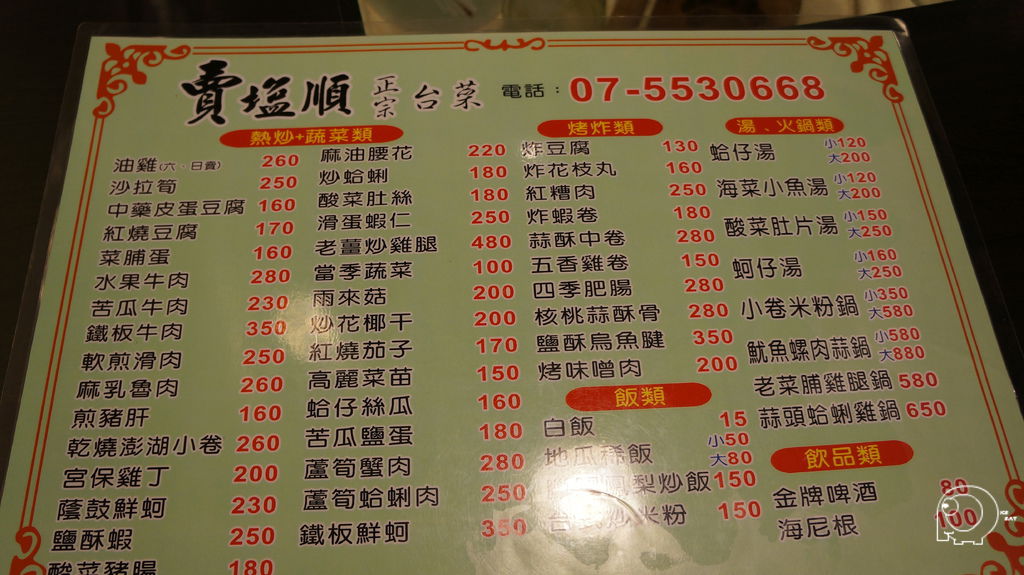 賣塩順 正宗台菜 電話：07-5530668
熱炒+蔬菜類
油雞(六、日賣) 260
沙拉筍 250
中藥皮蛋豆腐 160
紅燒豆腐 170
菜脯蛋 160
水果牛肉 280
苦瓜牛肉 230
鐵板牛肉 350
軟煎滑肉 250
麻乳魯肉 260
煎豬肝 160
乾燒澎湖小卷 260
宮保雞丁 200
蔭鼓鮮蚵 230
鹽酥蝦 250
酸菜豬腸 180
麻油腰花 220
炒蛤蜊 180
酸菜肚絲 180
滑蛋蝦仁 250
老薑炒雞腿 480
當季蔬菜 100
雨來菇 200
炒花椰干 200
紅燒茄子 170
高麗菜苗 150
蛤仔絲瓜 160
苦瓜鹽蛋 180
蘆筍蟹肉 280
蘆筍蛤蜊肉 250
鐵板鮮蚵 350
烤炸類
炸豆腐 130
炸花枝丸 160
紅糟肉 250
炸蝦卷 180
蒜酥中卷 280
五香雞卷 150
四季肥腸 280
核桃蒜酥骨 280
鹽酥烏魚腱 350
烤味噌肉 200
飯類
白飯 15
地瓜稀飯 小50 大80
梨炒飯 150
炒米粉 150
湯、火鍋類
蛤仔湯 小120 大200
海菜小魚湯 小120 大200
酸菜肚片湯 小150 大250
蚵仔湯 小160 大250
小卷米粉鍋 小350 大580
魷魚螺肉蒜鍋 小580 大880
老菜脯雞腿鍋 580
蒜頭蛤蜊雞鍋 650
飲品類
金牌啤酒 80
海尼根 100